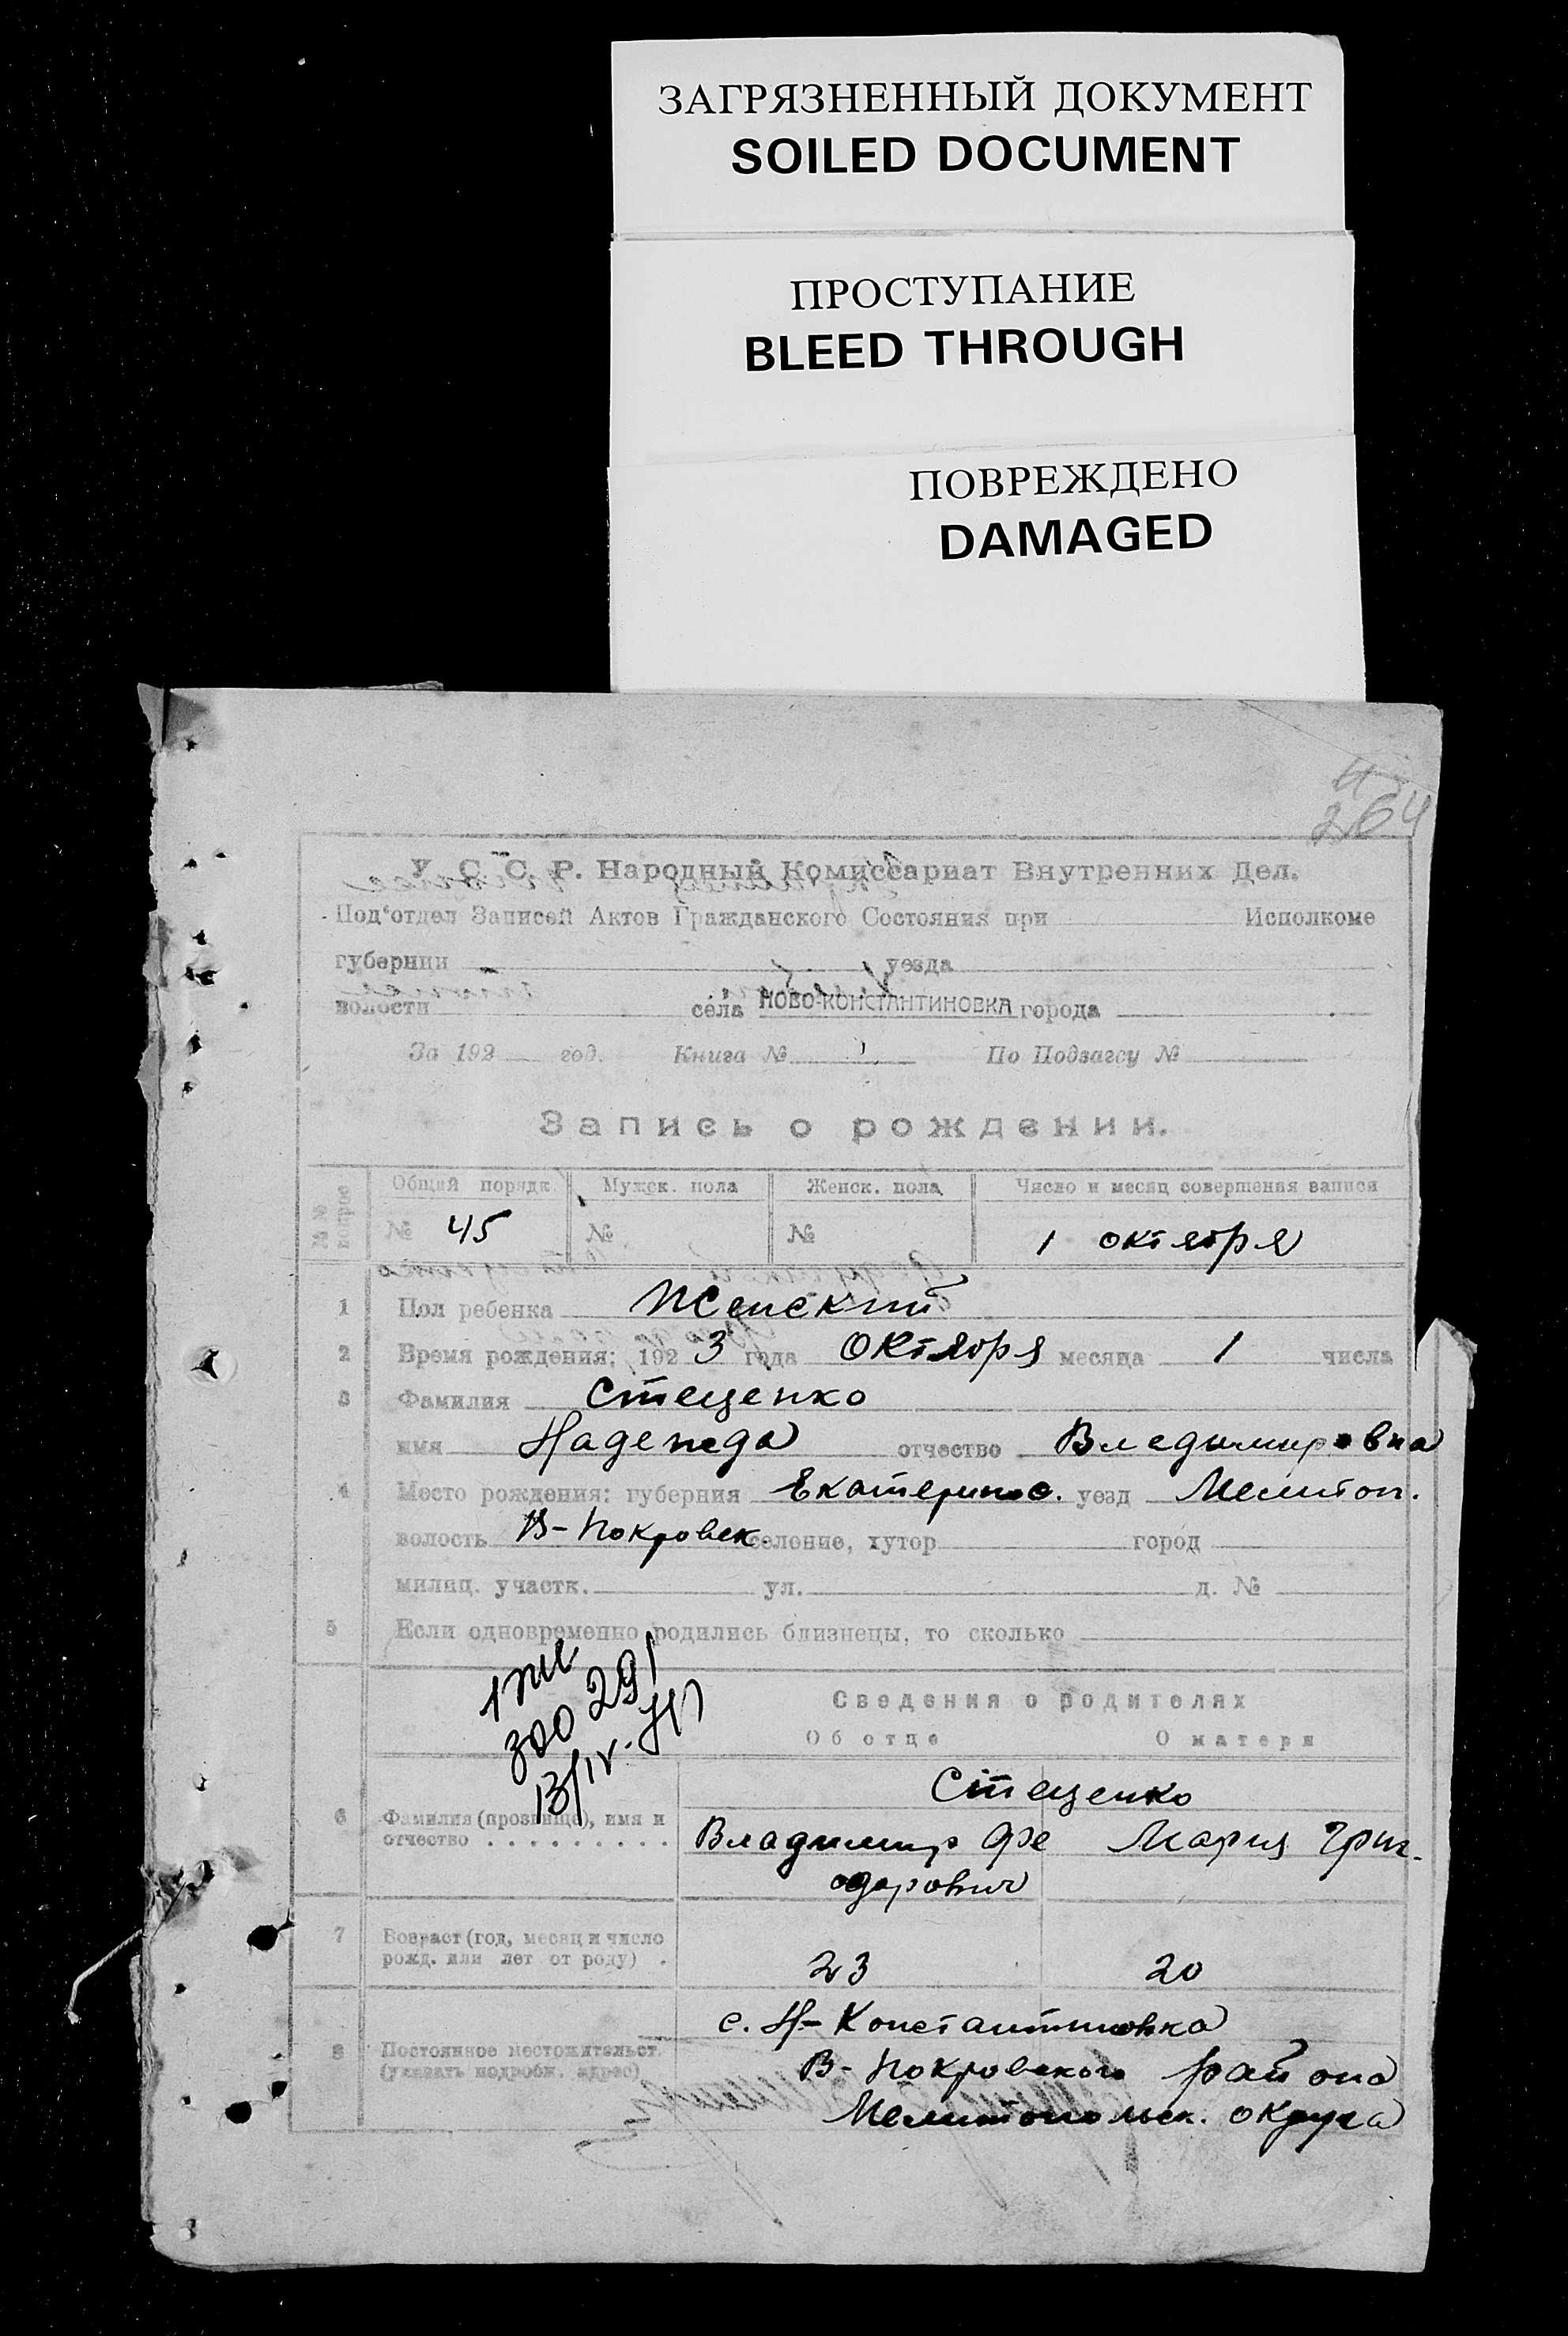 ЗАГРЯЗНЕННЫЙ ДОКУМЕНТ
SOILED DOCUMENT
ПРОСТУПАНИЕ
BLEED THROUGH
ПОВРЕЖДЕНО
DAMAGED
264
У. С. С. Р. Народный Комиссариат Внутренних Дел.
Под'отдел Записей Актов Гражданского Состояния при Исполкоме
губернии уезда
волости села НОВО-КОНСТАНТИНОВКА города
За 192 год. Книга № По Подзагсу №
Запись о рождении.
№№ вопрос Общий порядк. Мужск. пола Женск. пола Число и месяц совершения записи
№ 45 № № 1 октября
1 Пол ребенка Женский
2 Время рождения: 192 3 года Октября месяца 1 числа
3 Фамилия Стеценко
имя Надежда отчество Владимировна
4 Место рождения: губерния Екатеринос. уезд Мелитоп.
волость В-Покровск. селение, хутор город
милиц. участк. ул. д. №
5 Если одновременно родились близнецы, то сколько
291
300
13/IV-
Сведения о родителях
Об отце О матери
Стеценко
6 Фамилия (прозвище), имя и отчество . . . . . . . . . Владимир Фе Мария Григ.
одорович
7 Возраст (год, месяц и число
рожд. или лет от роду) . 23 20
с. Н-Константиновка
8 Постоянное местожительст.
(указать подробн. адрес) В-Покровского района
Мелитопольск. округа